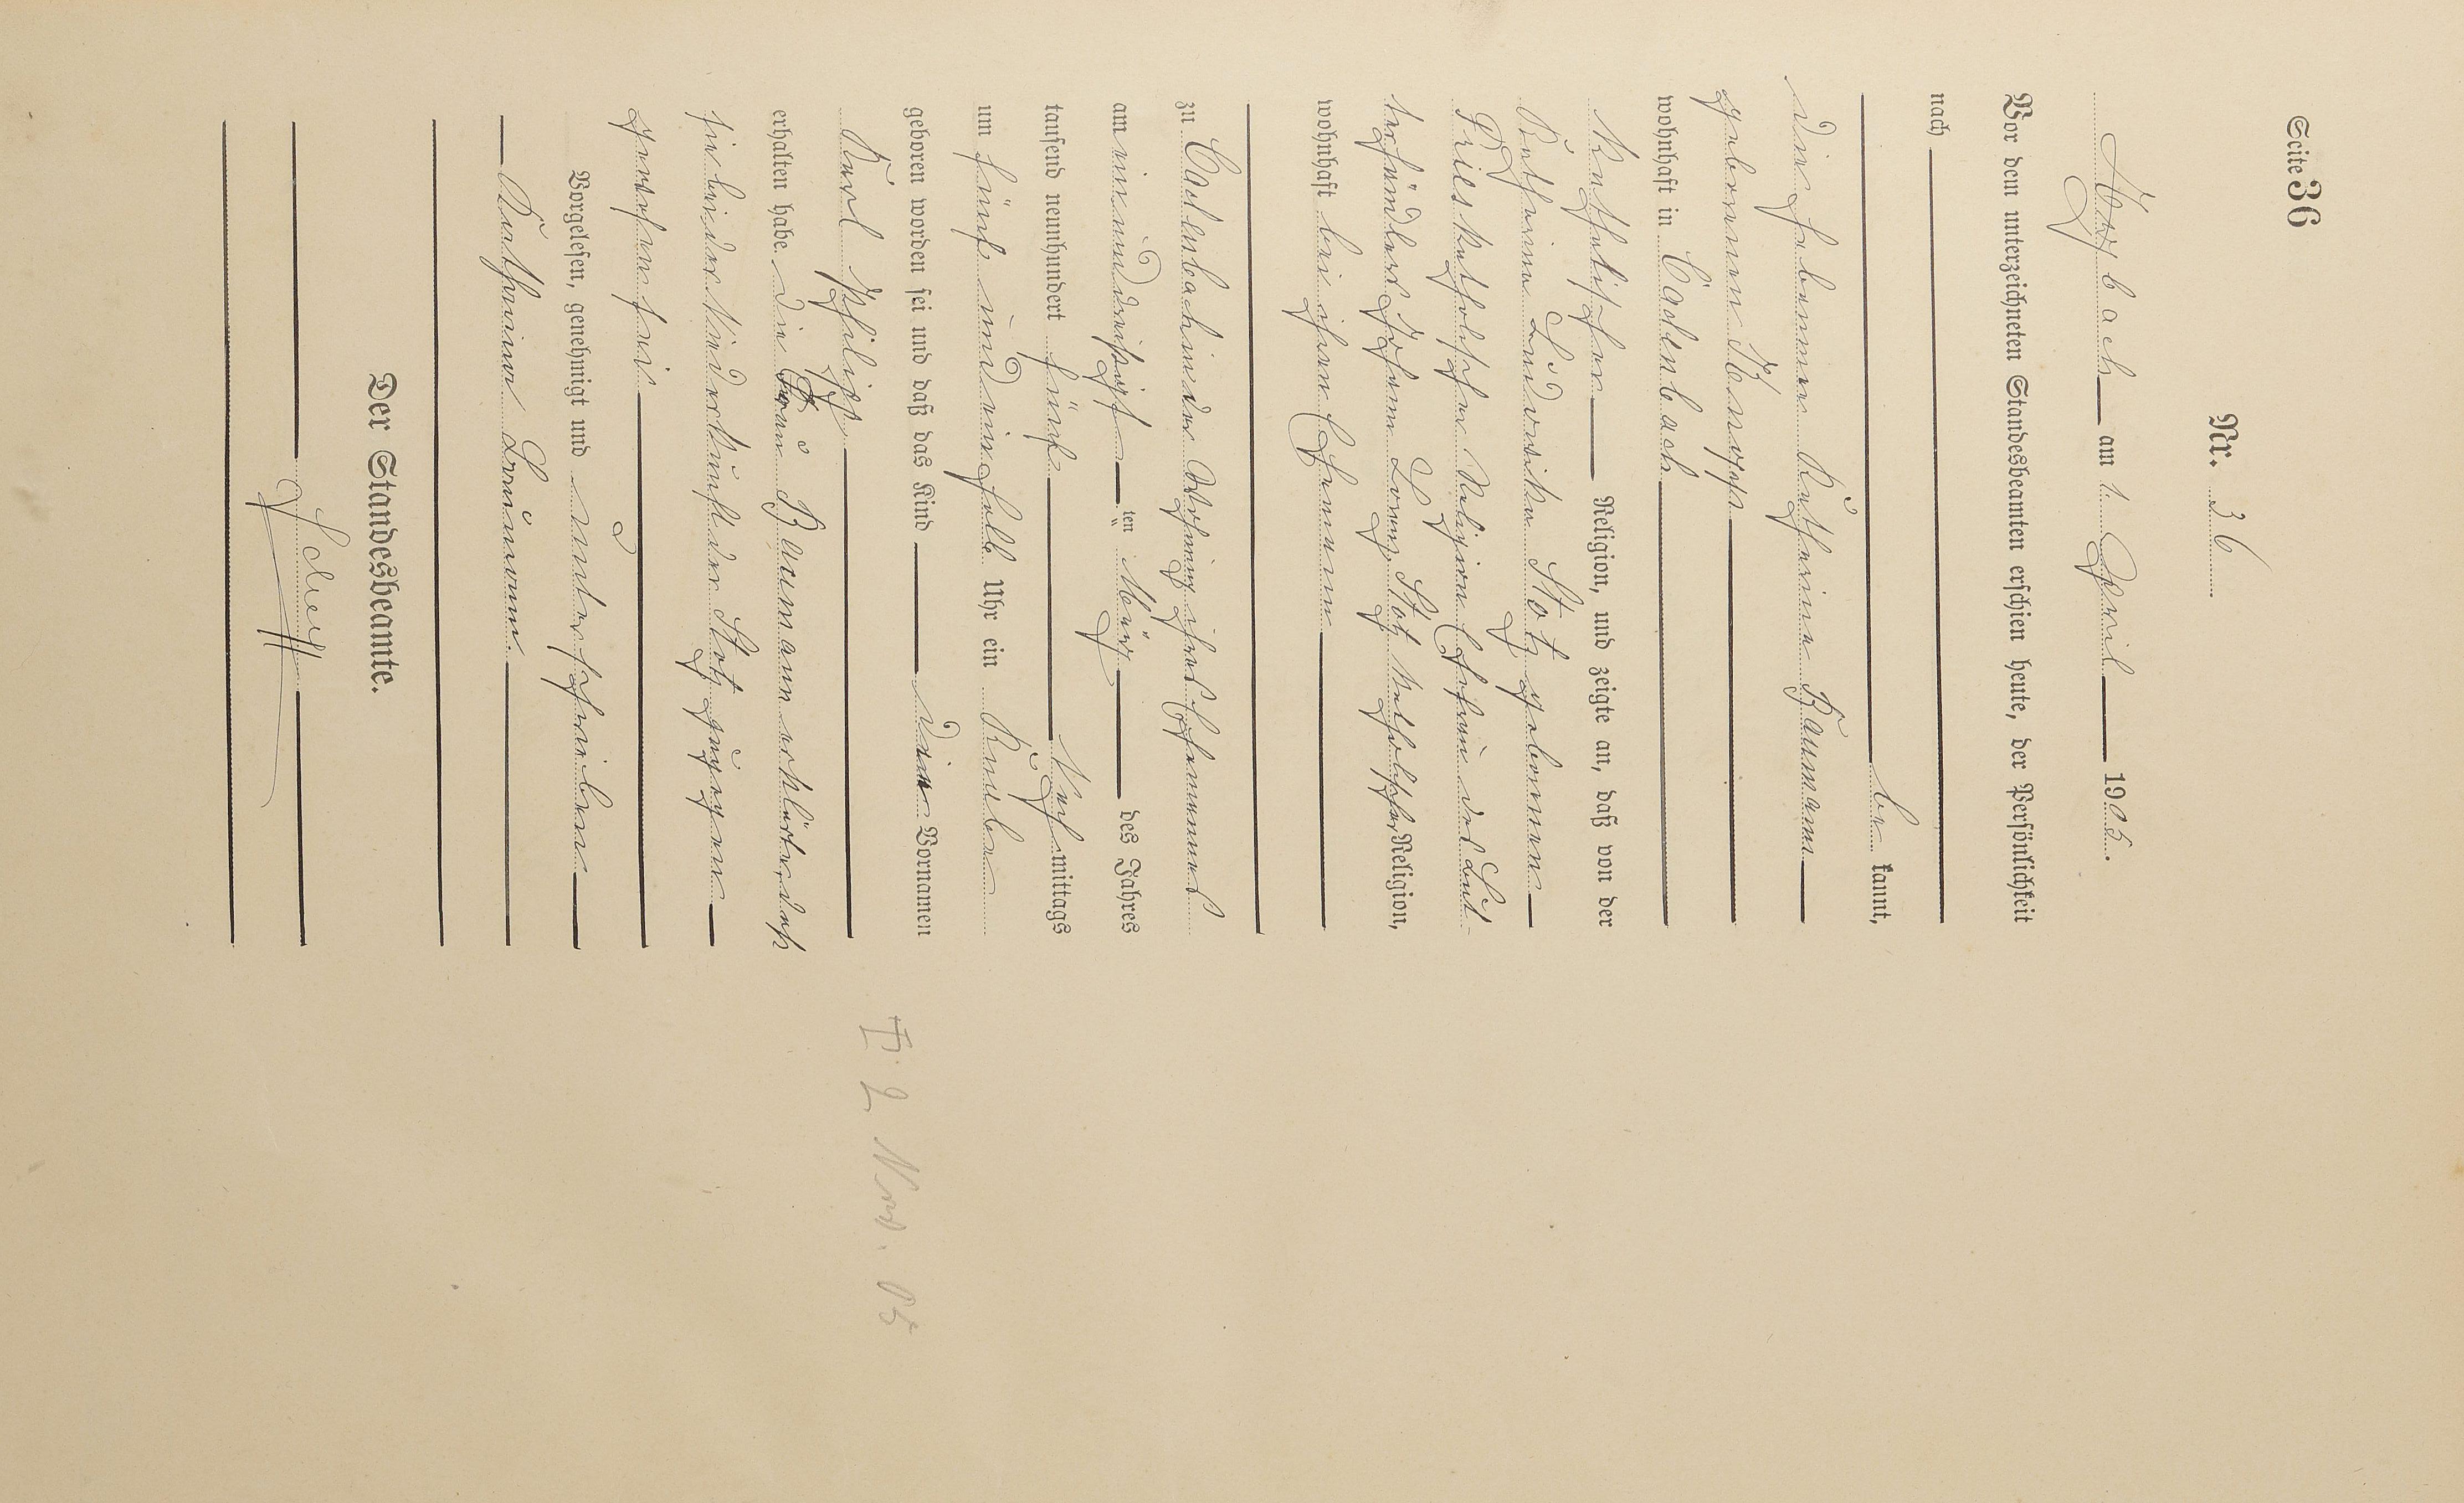 Seite 36
Nr. 36
Maybach am 1. April 1905.
Vor dem unterzeichneten Standesbeamten erschien heute, der Persönlichkeit
nach
be kannt,
die Hebamme Katharina Baumann
geborene
wohnhaft in Cadenbach
katholischer Religion, und zeigte an, daß von der
Katharina Ludovika Stotz geborenen
Pries katholischer Religion Ehefrau des Leut-
Johann Lorenz Stotz katholischer Religion,
wohnhaft bei ihrem Ehemann
zu Cadenbach in der Wohnung ihres Ehemannes
am einunddreißigst ten März des Jahres
tausend neunhundert fünf Nach mittags
um fünf und ein halb Uhr ein Knabe
geboren worden sei und daß das Kind die Vornamen
Karl Philipp
erhalten habe. Die Frau Baumann erklärte, daß
sie bei der Niederkunft der Stotz zugegen
gewesen sei
Vorgelesen, genehmigt und unterschrieben
Katharina Baumann.
Der Standesbeamte.
2 Nov. 05